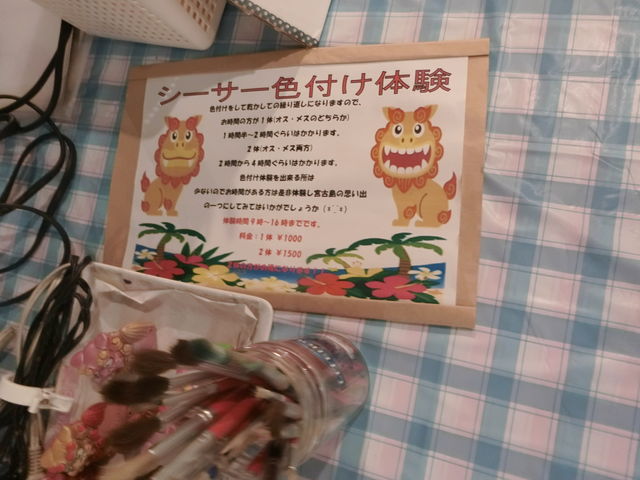 シーサー色付け体験
色付けをして乾かしての繰り返しになりますので、
お時間の方が1体(オス・メスのどちらか)
1時間半~2時間ぐらいはかかります。
2体(オス・メス両方)
2時間から4時間ぐらいはかかります。
色付け体験を出来る所は
少ないのでお時間がある方は是非体験し宮古島の思い出
の一つにしてみてはいかがでしょうか
体験時間9時~16時までです。
料金:1体 ¥1000
2体 ¥1500